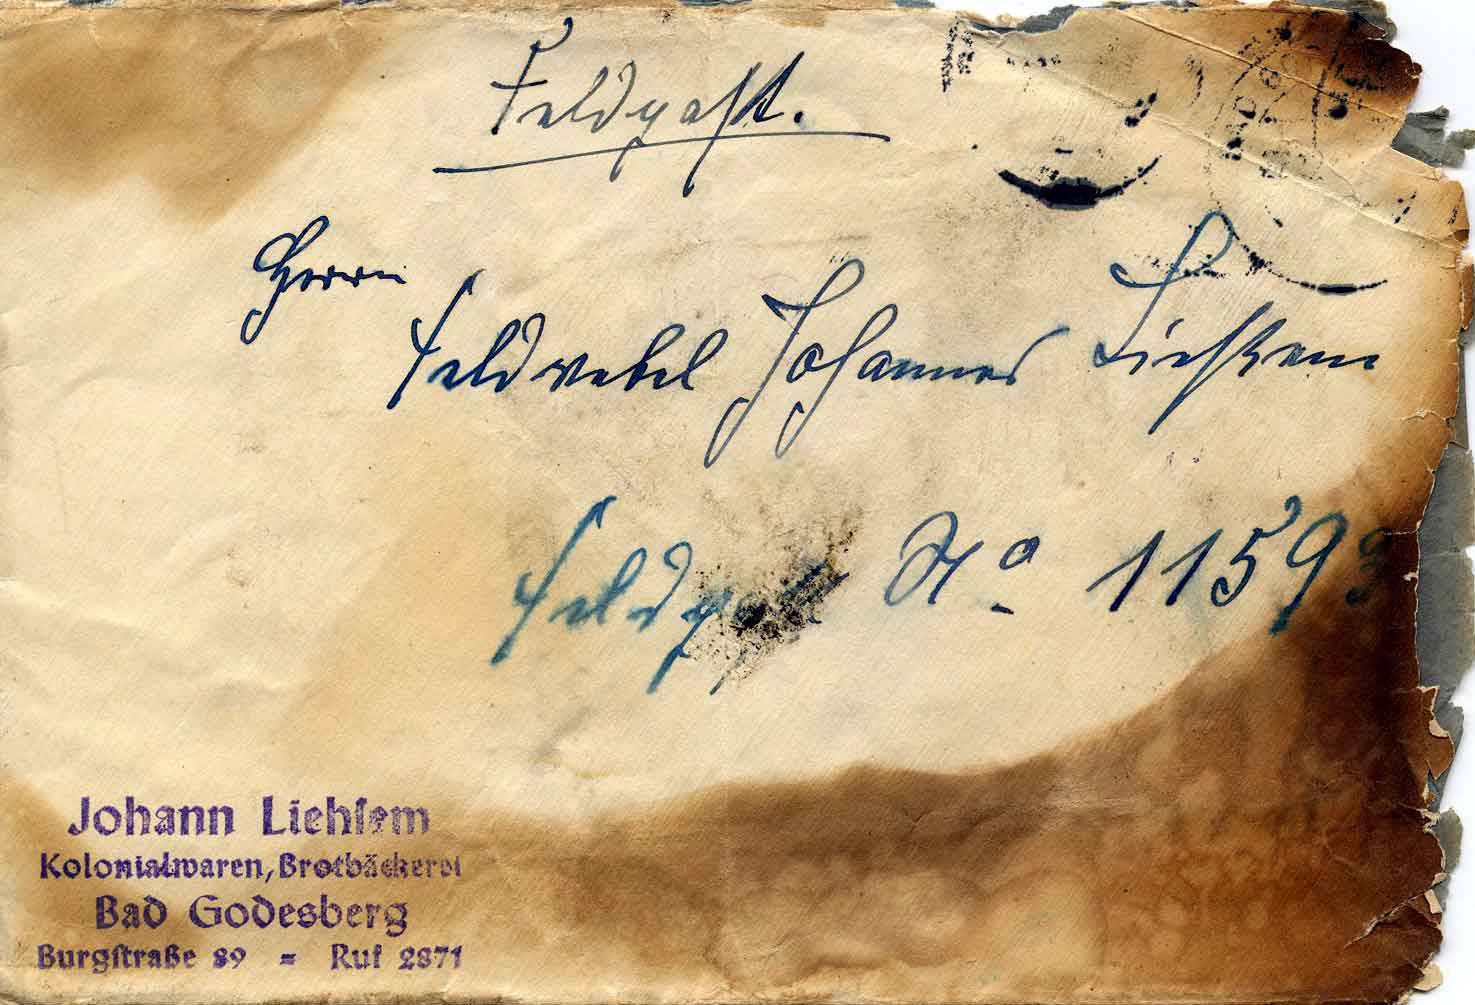 Feldpost.
Herrn
Feldwebel Johannes Liehsem
Feldpost No 11593
Johann Liehsem
Kolonialwaren, Brotbäckerei
Bad Godesberg
Burgstraße 89 = Ruf 2871